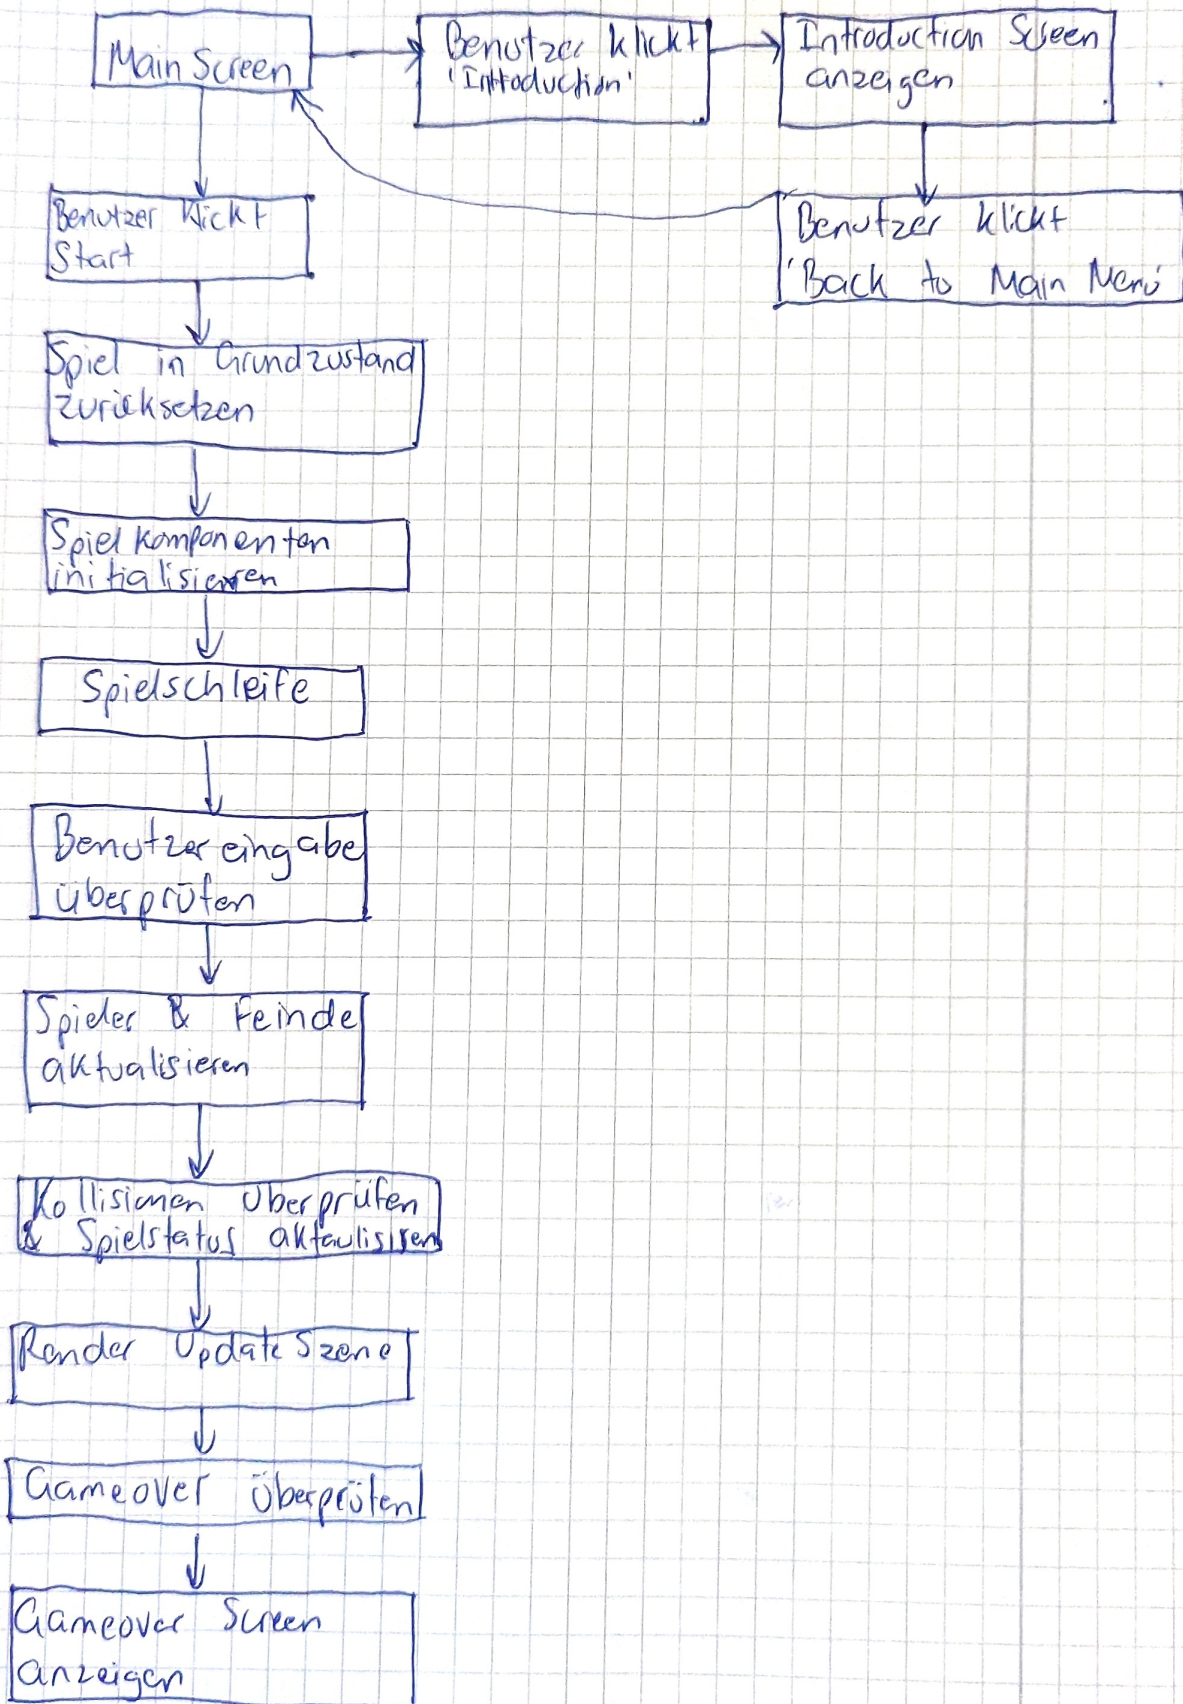 Main Screen
Benutzer klickt
'Introduction'
Introduction Screen
anzeigen
Benutzer klickt
'Back to Main Menü'
Benutzer klickt
Start
Spiel in Grundzustand
zurücksetzen
Spielkomponenten
initialisieren
Spielschleife
Benutzereingabe
überprüfen
Spieler & Feinde
aktualisieren
Kollisionen überprüfen
& Spielstatus aktaulisiren
Render Update Szene
Gameover überprüfen
Gameover Screen
anzeigen